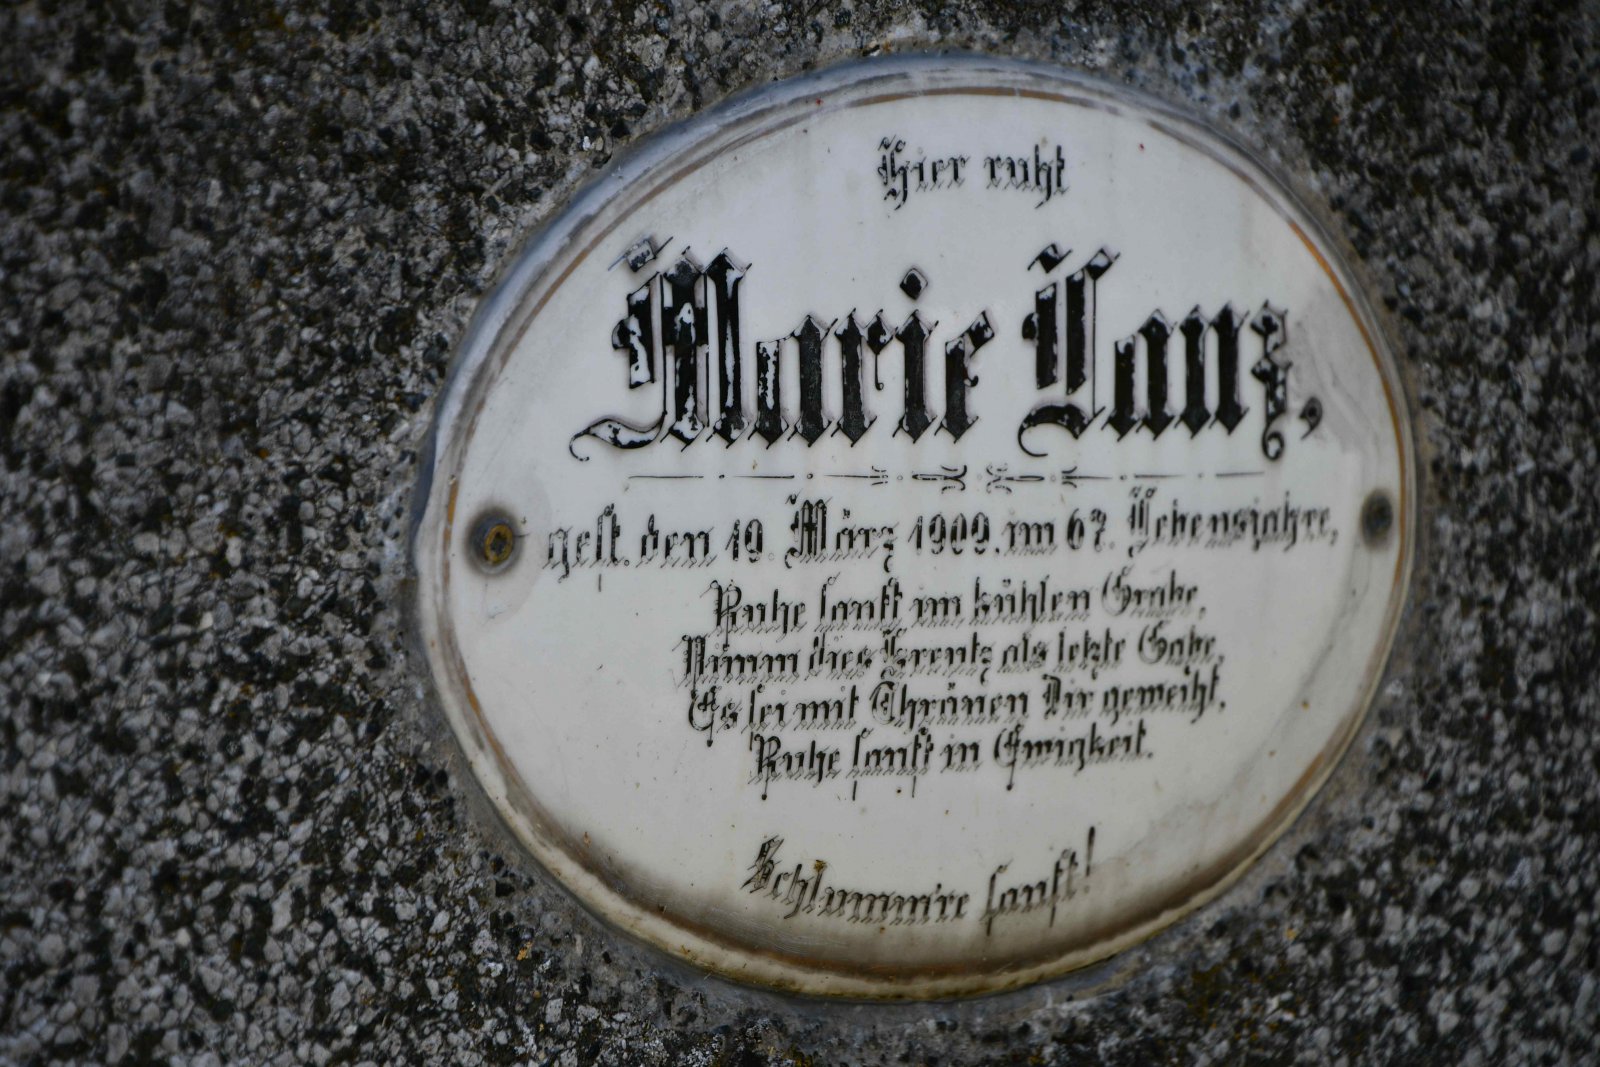 Hier ruht
Marie Lanz,
gest. den 19. März 1909. im 67. Lebensjahre,
Ruhe sanft im kühlen Grabe,
Nimm dies Kreutz als letzte Gabe,
Es sei mit Thränen Dir geweiht,
Ruhe sanft in Ewigkeit.
Schlumm're sanft!